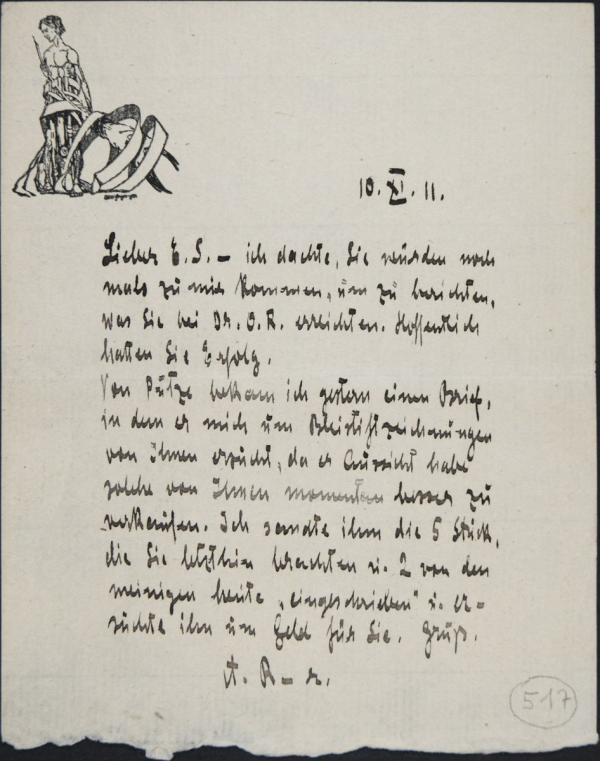 10. XI. 11.
Lieber E. S. – ich dachte, Sie würden noch
mals zu mir kommen, um zu berichten,
was Sie bei Dr. O. R. erreichten. Hoffentlich
hatten Sie Erfolg.
Von Putze bekam ich gestern einen Brief,
in dem er mich um Bleistiftzeichnungen
von Ihnen ersucht, da er Aussicht habe
solche von Ihnen momentan besser zu
verkaufen. Ich sandte ihm die 5 Stück,
die Sie letzthin brachten u. 2 von den
meinigen heute „eingeschrieben" u. er-
suchte ihn um Geld für Sie. Gruß.
A. R – r.
517